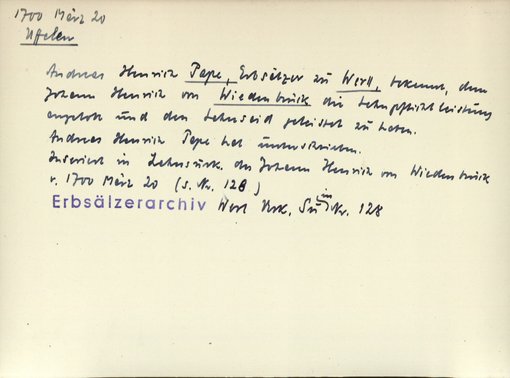 1700 März 20
Uffelen
Andreas Henrich Pape, Erbsälzer zu Werl, bekennt, dem
Johann Henrich von Wiedenbrück die Lehnspflichtleistung
angelobt und den Lehnseid geleistet zu haben.
Andreas Henrich Pape hat unterschrieben.
Inseriert in Lehnsurk. des Johann Henrich von Wiedenbrück
v. 1700 März 20 (s. Nr. 128)
Erbsälzerarchiv Werl Urk. in Nr. 128